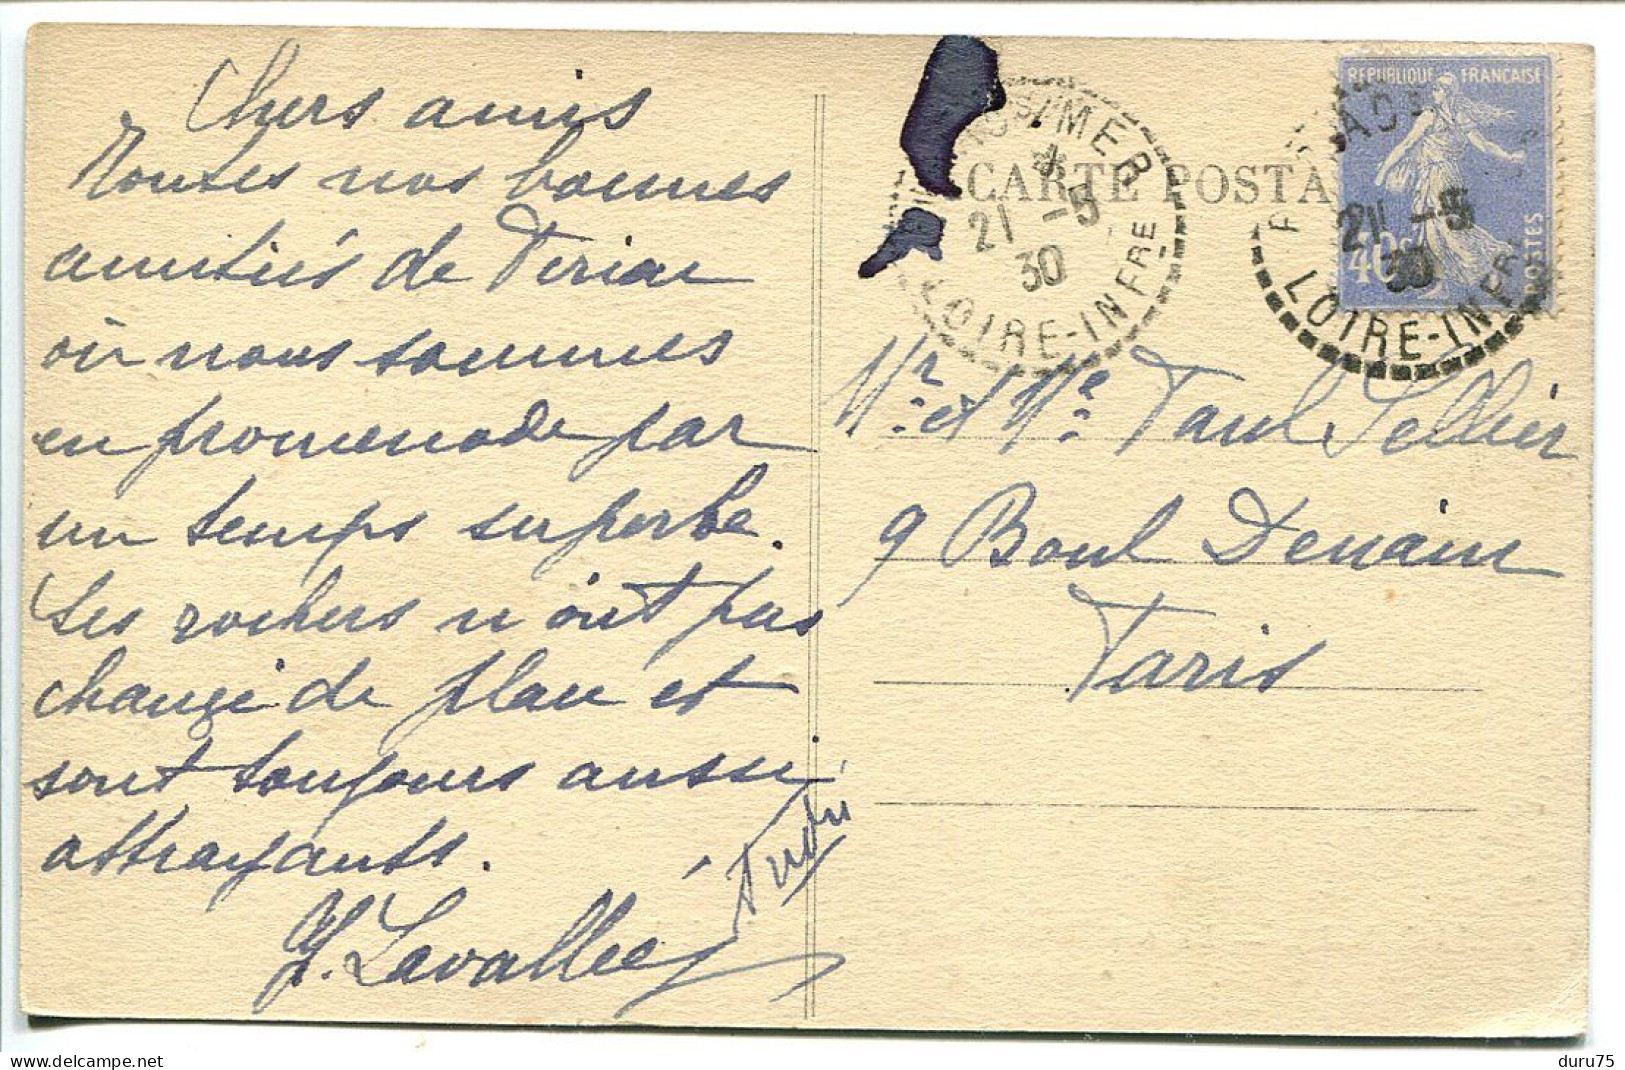 Chers amis
Toutes nos bonnes
amitiés de Piriac
où nous sommes
en promenade par
un temps superbe.
Les rochers n'ont pas
changé de place et
sont toujours aussi
attrayants.
Y. Lavallée
CARTE POSTA
/MER
21 -5
30
LOIRE-INFRE
REPUBLIQUE FRANÇAISE
POSTES
40c
21 -5
30
LOIRE-INFR
Mr. et Me. Paul Sellier
9 Boul Denain
Paris
delcampe.net
duru75